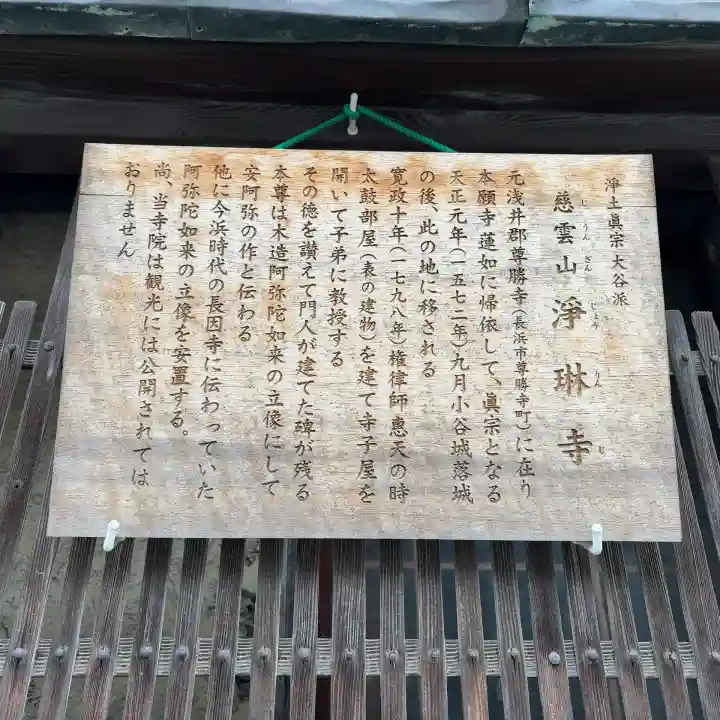 浄土眞宗大谷派
慈雲山淨琳寺
じうんざんじょうりんじ
元浅井郡尊勝寺(長浜市尊勝寺町)に在り
本願寺蓮如に帰依して、眞宗となる
天正元年(一五七二年)九月小谷城落城
の後、此の地に移される
寛政十年(一七九八年)権律師惠天の時
太鼓部屋(表の建物)を建て寺子屋を
開いて子弟に教授する
その徳を讃えて門人が建てた碑が残る
本尊は木造阿弥陀如来の立像にして
安阿弥の作と伝わる
他に今浜時代の長因寺に伝わっていた
阿弥陀如来の立像を安置する。
尚、当寺院は観光には公開されては
おりません